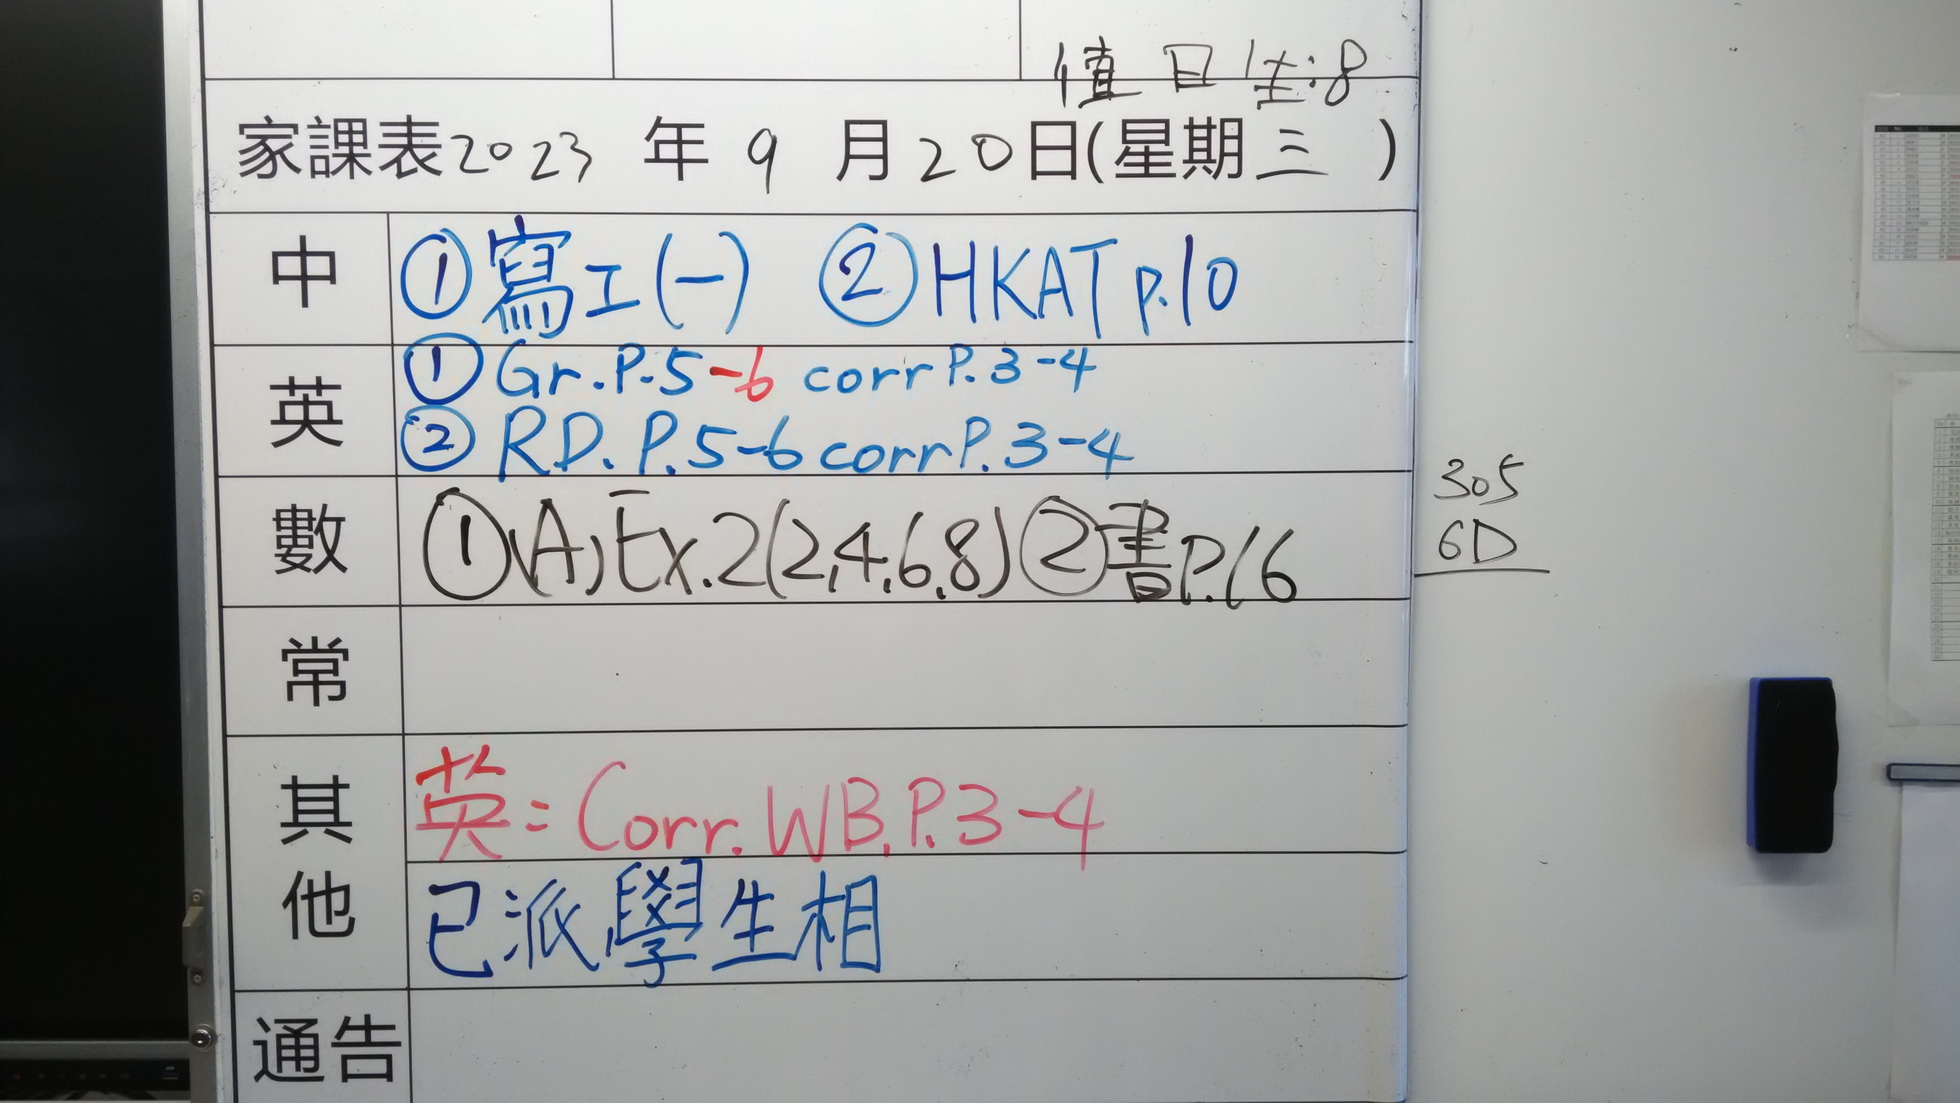 值日生:8
家課表2023年9月20日(星期三)
中 ①寫工(一) ②HKAT p.10
英 ①Gr.P.5-6 corr P.3-4
②R.D. P.5-6 corr P.3-4
數 ①(A)Ex.2(2,4,6,8)②書P.16
305
6D
常
其他 英:Corr.WB.P.3-4
已派學生相
通告